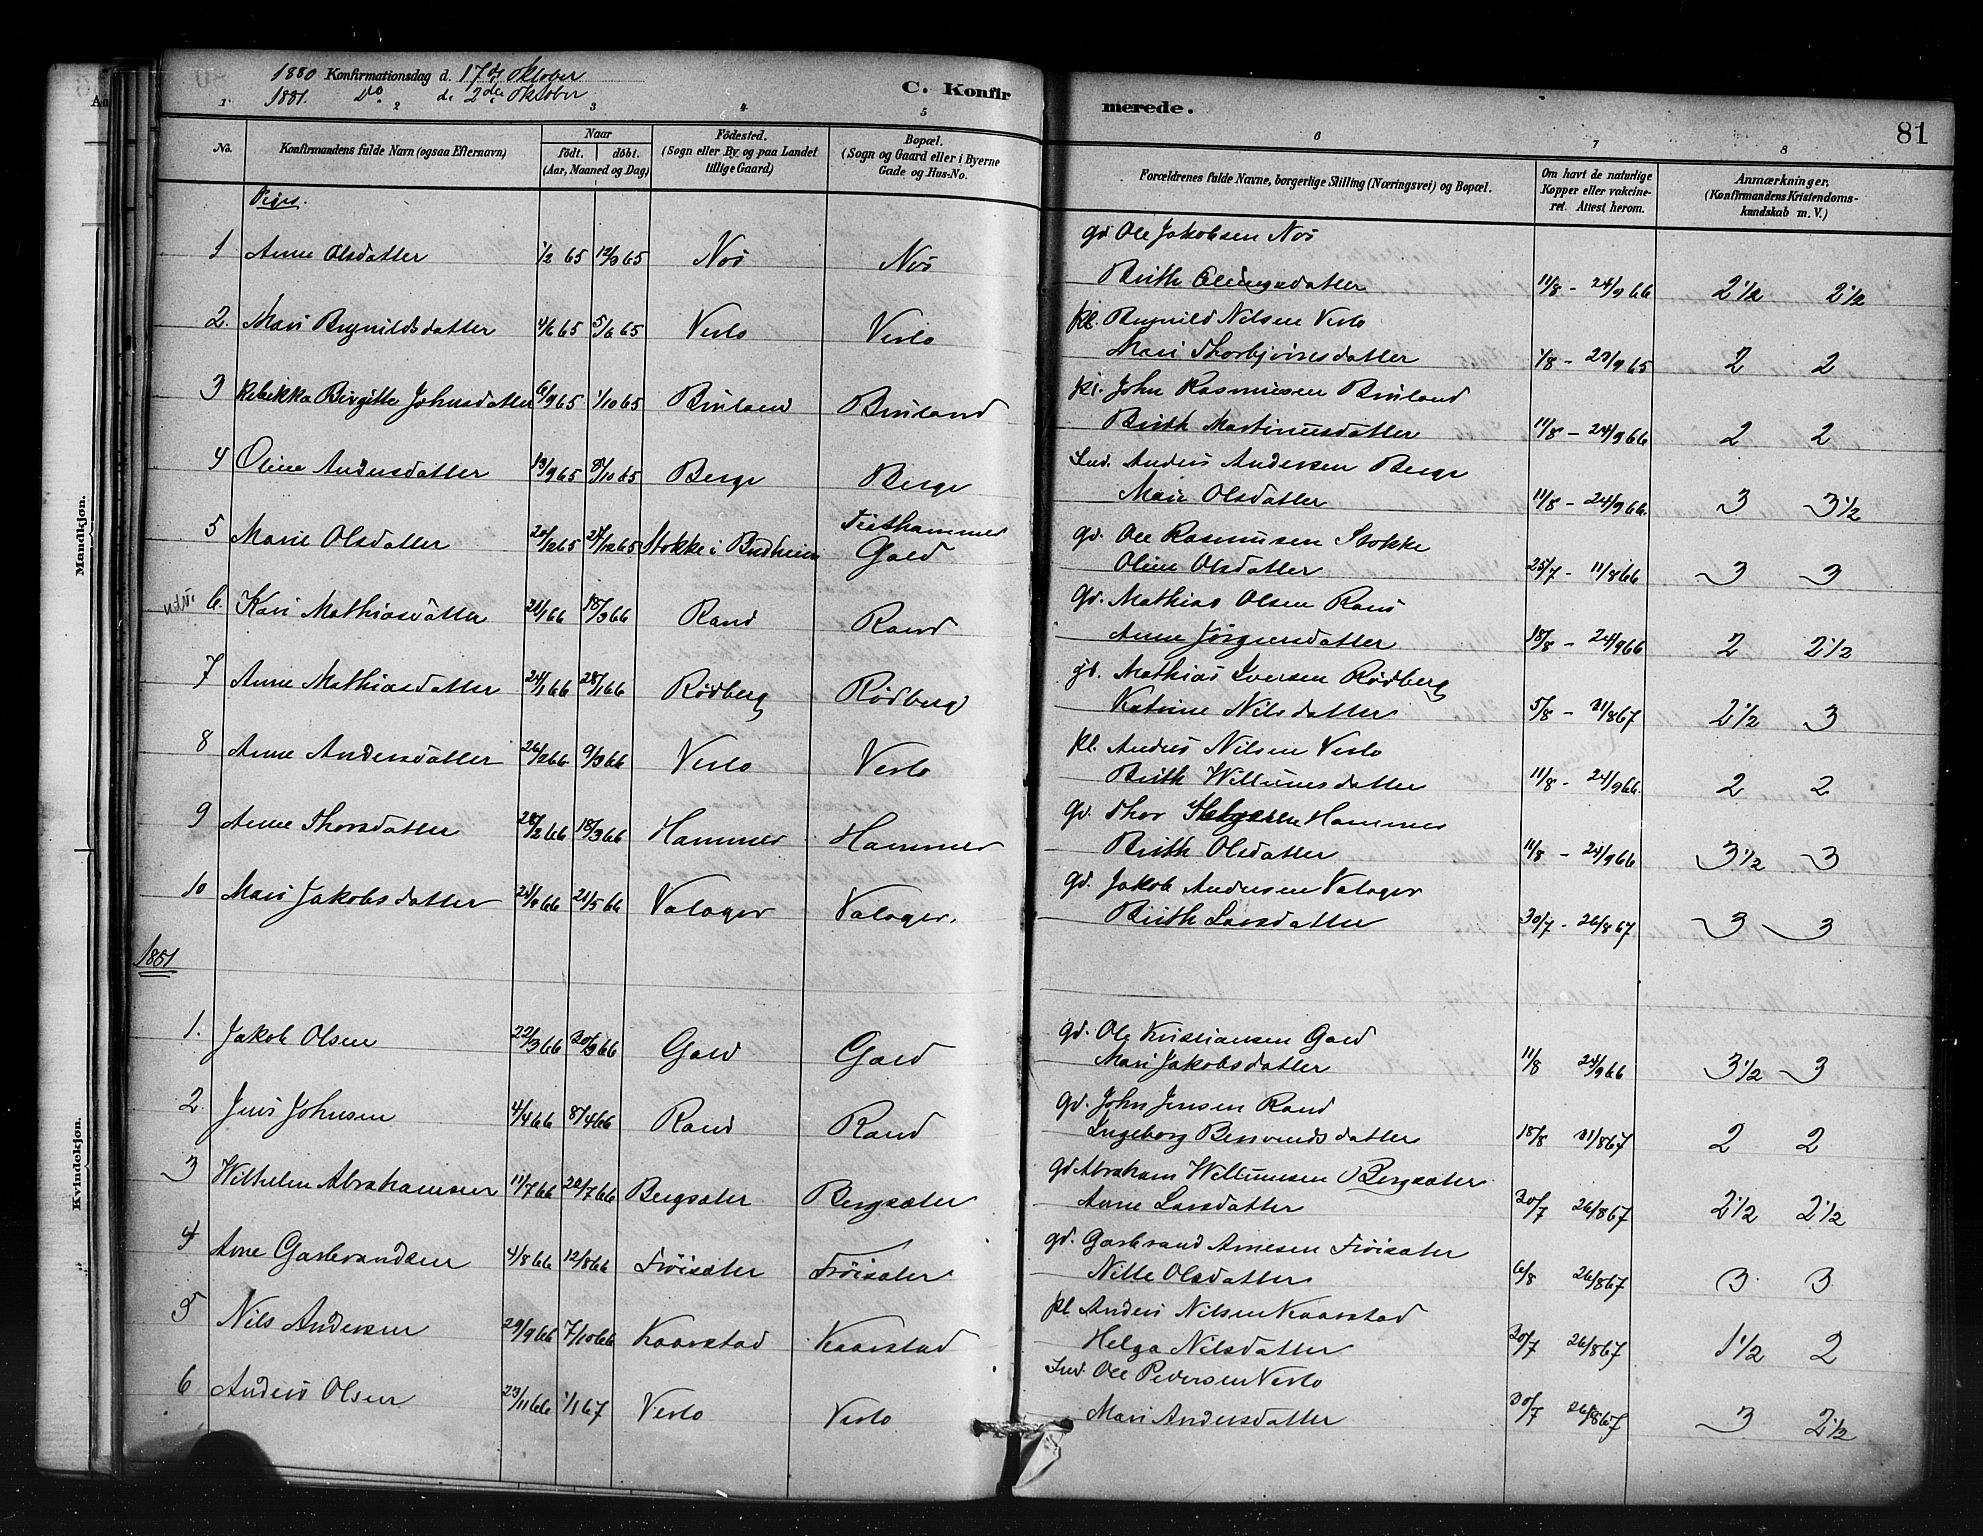 1880 Konfirmationsdag d. 17de Oktober
1881. Do. d. 2den Oktober
C. Konfirmerede.
81
1 2 3 4 5 6 7 8
No.
Konfirmandens fulde Navn (ogsaa Efternavn)
Naar
födt. | döbt.
(Aar, Maaned og Dag)
Födested.
(Sogn eller By og paa Landet
tillige Gaard)
Bopæl.
(Sogn og Gaard eller i Byerne
Gade og Hus-No.
Forældrenes fulde Navne, borgerlige Stilling (Næringsvei) og Bopæl.
Om havt de naturlige
Kopper eller vakcine-
ret. Attest herom.
Anmærkninger.
(Konfirmandens Kristendoms-
kundskab m. V.)
Mandkjøn.
Kvindekjøn.
Piger.
gd Ole Jakobsen Nos
1 Anne Olsdatter 1/2 65 12/3 65 Nos Nos
Brith Ellingsdatter 11/8 - 24/9 66 2 1/2 2 1/2
2. Mari Brynildsdatter 4/6 65 5/6 65 Verlo Verlo pl. Brynild Nilsen Verlo
Mari Thorbjörnsdatter 1/8 - 23/9 65 2 2
3 Rebikka Birgitte Johnsdatter 6/9 65 1/10 65 Bruland Bruland pl. John Rasmussen Bruland
Brith Martinusdatter 11/8 - 24/9 66 2 2
4 Oline Andersdatter 19/9 65 8/10 65 Berge Berge Ind. Anders Andersen Berge
Mari Olsdatter 11/8 - 24/9 66. 3 3 1/2
5 Marie Olsdatter 20/12 65 24/12 65 Stokke i Budheim Fisthammer
Gald gd. Ole Rasmussen Stokke
Oline Olsdatter 25/7 - 11/8 66 3 3
6. Kari Mathiasdatter 21/1 66 18/3 66 Rand Rand gd. Mathias Olsen Rand
Anne Jörgensdatter 18/8 - 24/9 66 2 2 1/2
7 Anne Mathiasdatter 24/1 66 28/1 66 Rödberg Rödberg gd. Mathias Iversen Rödberg
Katrine Nilsdatter 5/8 - 31/8 67 2 1/2 3
8 Anne Andersdatter 26/2 66. 9/3 66 Verlo Verlo pl. Anders Nilsen Verlo
Brith Willumsdatter 11/8 - 24/9 66. 2 2
9 Anne Thorsdatter 28/2 66 18/3 66 Hammer Hammer gd. Thor Helgesen Hammer
Brith Olsdatter 11/8 - 24/9 66 3 1/2 3
10 Mari Jakobsdatter 66 21/5 66 Valager Valager. gd. Jakob Andersen Valager
Brith Larsdatter 30/7 - 26/8 67 3 3
1881
1. Jakob Olsen 22/3 66 30/3 66 Gald Gald gd. Ole Kristiansen Gald
Mari Jakobsdatter 11/8 24/9 66 3 1/2 3
2. Jens Johnsen 4/4 66 8/4 66 Rand Rand gd. John Jensen Rand
Ingeborg datter 18/8 31/8 67 2 2
3 Wilhelm Abrahamsen 11/7 66 22/7 66 Bergsæter Bergsæter gd Abraham Willumsen Bergsæter
Anne Larsdatter 30/7 26/8 67 2 1/2 2 1/2
4 Arne Garbrandsen 4/8 66 12/8 66 Fröisæter Fröisæter gd. Garbrand Arnesen Fröisæter
Nille Olsdatter 6/8 26/8 67 3 3
5 Nils Andersen 29/9 66 7/10 66 Kaarstad Kaarstad pl. Anders Nilsen Kaarstad
Helga Nilsdatter 30/7 26/8 67 1 1/2 2
6 Anders Olsen 23/11 66 1/1 67 Verlo Verlo Ind. Ole Pedersen Verlo
Mari Andersdatter 30/7 26/8 67 3 2 1/2